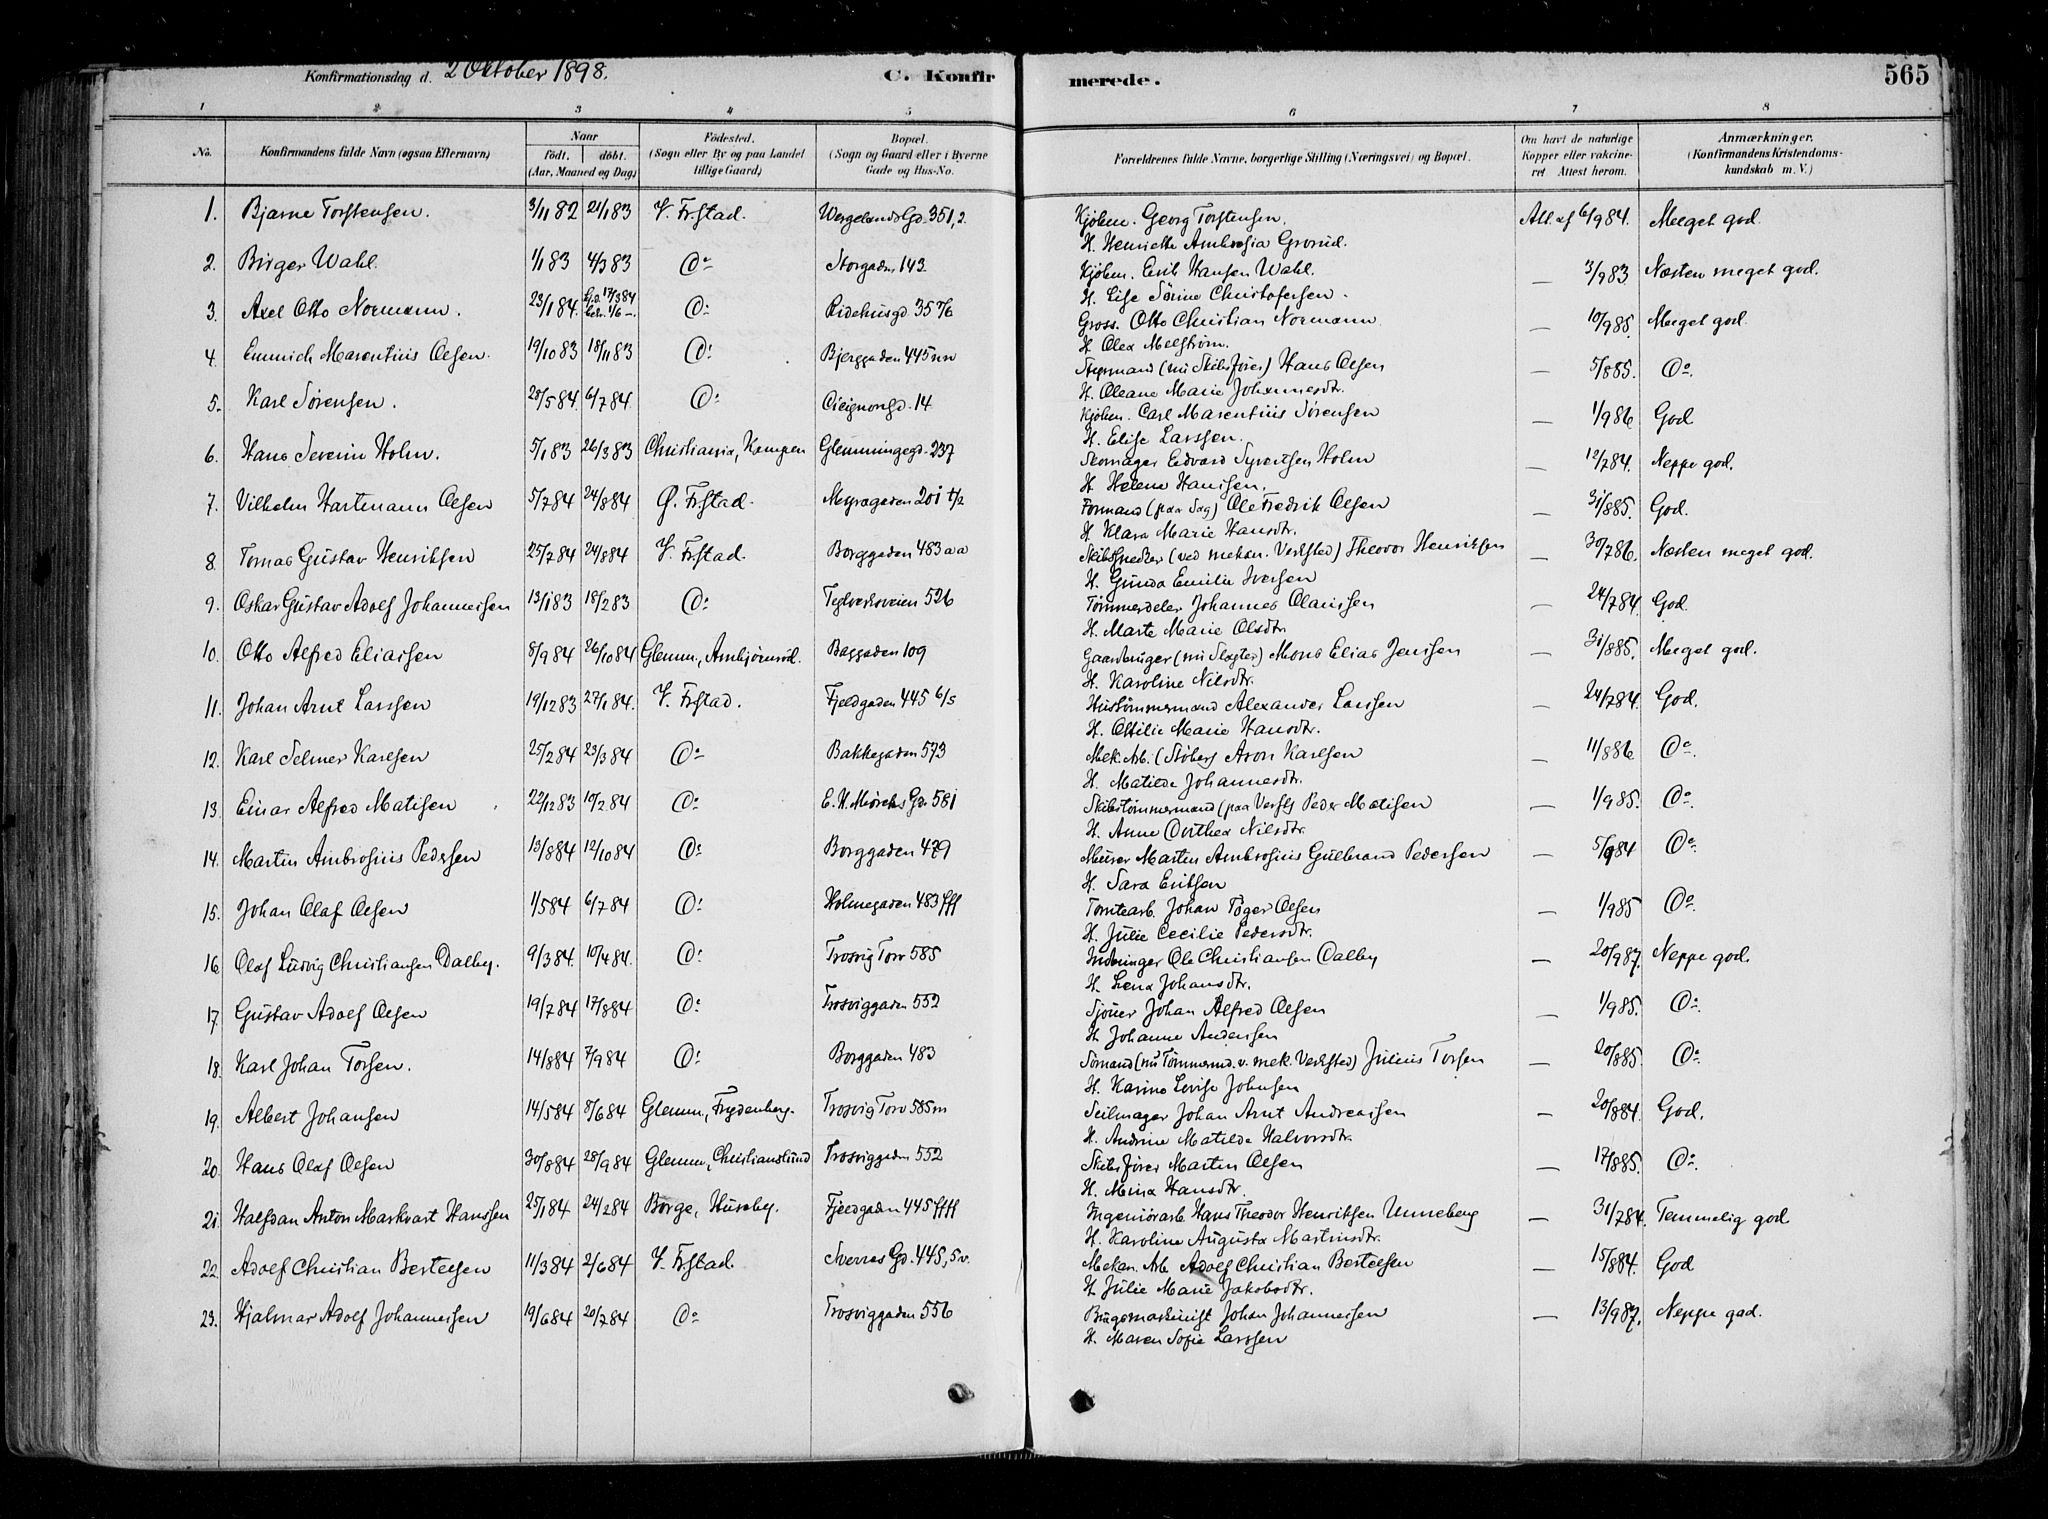 Konfirmationsdag d. 2 October 1898. C. Konfirmerede. 565
1 2 3 4 5 6 7 8
No. Konfirmandens fulde Navn (ogsaa Efternavn) Naar født, døbt. (Aar, Maaned og Dag) Fødested. (Sogn eller By og paa Landet tillige Gaard) Bopæl. (Sogn og Gaard eller i Byerne Gade og Hus-No. Forældrenes fulde Navne, borgerlige Stilling (Næringsvei) og Bopæl. Om havt de naturlige Kopper eller vakcineret Attest herom. Anmærkninger. (Konfirmandens Kristendomskundskab m. V.)
1. Bjarne Torstensen. 3/11 82 21/1 83 V. Fr.stad. Wergelands Gd. 351,2. Kjøbm. Georg Torstensen. Att. af 6/9 84. Meget god.
H. Henriette Ambrosia Grorud.
2. Birger Wahl. 1/1 83 4/3 83 Do Storgaden 143. Kjøbm. Erik Hansen Wahl. — 3/9 83. Næsten meget god.
H. Lise Sørine Christofersen.
3. Axel Otto Normann. 23/1 84. hjd. 17/3 84 bekr. 1/6 —. Do Ridehusgd 35 Gross. Otto Christian Normann — 10/9 85. Meget god.
H. Olea Melstrøm.
4. Emmich Marentius Olsen. 19/10 83 18/11 83 Do Bjerggaden 445 nn Styrmand (nu Skibsfører) Hans Olsen — 5/8 85. Do.
H. Oleane Marie Johannesdtr.
5. Karl Sørensen. 28/5 84. 6/7 84 Do Cicignongd. 14 Kjøbm. Carl Marentius Sørensen — 1/9 86 God
H. Elise Larssen.
6. Hans Severin Holm. 5/1 83 26/3 83 Christiania, Kampen Glemmingegd. 237 Skomager Edvard Syvertsen Holm — 12/7 84. Neppe god.
H. Helene Hanssen.
7. Vilhelm Hartmann Olsen 5/7 84 24/8 84 Ø. Fr.stad. Myragaden 201 t/2 Formand (paa Sag) Ole Fredrik Olsen — 31/8 85. God.
H. Klara Marie Hansdtr.
8. Tomas Gustav Henriksen 25/7 84 24/8 84 V. Fr.stad. Borggaden 483 aa Skibssnedker (ved mekan. Verksted) Theodor Henriksen — 30/7 86. Næsten meget god.
H. Gunda Emilie Iversen
9. Oskar Gustav Adolf Johannessen 13/1 83 18/2 83 Do Teglverksveien 526 Tømmerdeler Johannes Olaussen — 24/7 84. God.
H. Marte Marie Olsdtr.
10. Otto Alfred Eliassen 8/9 84 26/10 84 Glemm., Ambjørnrød. Baggaden 109 Gaardbruger (nu Slagter) Mons Elias Jenssen — 31/8 85. Meget god.
H. Karoline Nilsdtr.
11. Johan Arnt Larssen 19/12 83 27/1 84. V. Fr.stad. Fjeldgaden 445 6/s Hustømmermand Alexander Larssen — 24/7 84. God.
H. Ottilie Marie Hansdtr.
12. Karl Selmer Karlsen 25/2 84 23/3 84 Do Bakkegaden 573 Mek. Arb. (Støber) Aron Karlsen — 11/8 86. Do.
H. Matilde Johannesdtr.
13. Einar Alfred Matisen 22/12 83 10/2 84 Do E. H. Mørchs Gd. 581 Skibstømmermand (paa Verft) Peder Matisen — 1/9 85. Do.
H. Anne Dorthea Nilsdtr.
14. Martin Ambrosius Pedersen 13/8 84 12/10 84 Do Borggaden 479 Murer Martin Ambrosius Gulbrand Pedersen — 5/9 84 Do
H. Sara Eriksen
15. Johan Olaf Olsen 1/5 84 6/7 84 Do Holmegaden 483 fff Tomtearb. Johan Tøger Olsen — 1/9 85 Do
H. Julie Cecilie Pedersdtr.
16. Olaf Ludvig Christiansen Dalby. 9/3 84. 10/4 84. Do Trosvig Torv 585 Ole Christiansen Dalby — 20/9 87. Neppe god.
H. Lena Johansdtr.
17. Gustav Adolf Olsen 19/7 84 17/8 84 Do Trosviggaden 552 Sjouer Johan Alfred Olsen — 1/9 85. Do
H. Johanne Andersen
18. Karl Johan Torsen. 14/8 84 7/9 84 Do Borggaden 483 Sømand (nu Tømmermd. v. mek. Verksted) Julius Torsen — 20/8 85. Do
H. Karine Lovise Johnsen
19. Albert Johansen 14/5 84 8/6 84 Glemm., Frydenberg. Trosvig Torv 585 m Seilmager Johan Arnt Andreassen — 20/8 84. God.
H. Andrine Matilde Halvorsdtr.
20. Hans Olaf Olsen 30/8 84 28/9 84 Glemm., Christianslund Trosviggaden 552 Skibsfører Martin Olsen — 17/8 85. Do
H. Mina Hansdtr.
21. Halfdan Anton Markvart Hanssen 25/1 84 24/2 84 Borge, Huseby. Fjeldgaden 445 ffff Ingeniørarb. Hans Theodor Henriksen Unneberg — 31/7 84. Temmelig god
H. Karoline Augusta Martinsdtr.
22. Adolf Christian Bertelsen 11/3 84 2/6 84 V. Fr.stad. Sverres Gd. 445,5 v. Mekan. Arb. Adolf Christian Bertelsen — 15/8 84. God
H. Julie Marie Jakobsdtr.
23. Hjalmar Adolf Johannessen 19/6 84 20/7 84 Do Trosviggaden 556 Brugsmaskinist Johan Johannessen — 13/9 87. Neppe god.
H. Maren Sofie Larssen